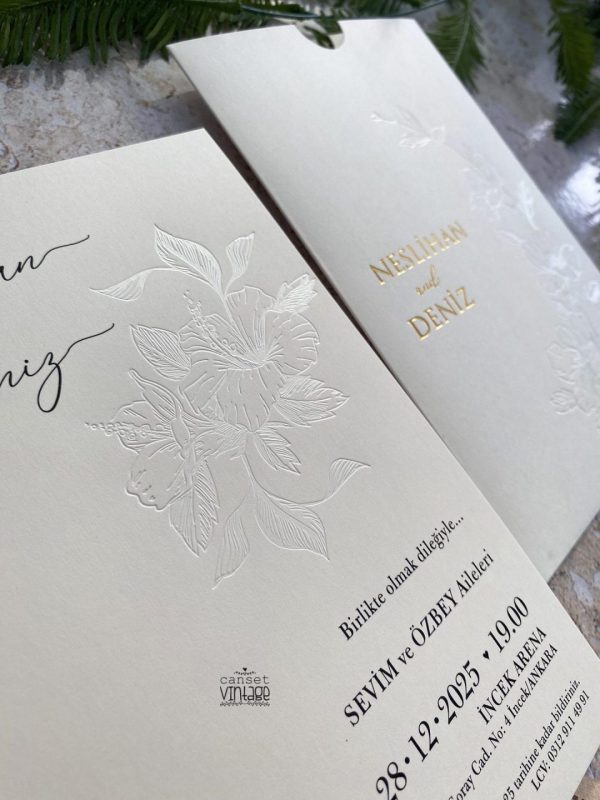 NESLİHAN
and
DENİZ
Birlikte olmak dileğiyle...
SEVİM ve ÖZBEY Aileleri
28·12·2025 ♥ 19.00
İNCEK ARENA
Cad. No: 4 İncek/ANKARA
tarihine kadar bildiriniz.
LCV: 0312 911 49 91
canset
vintage